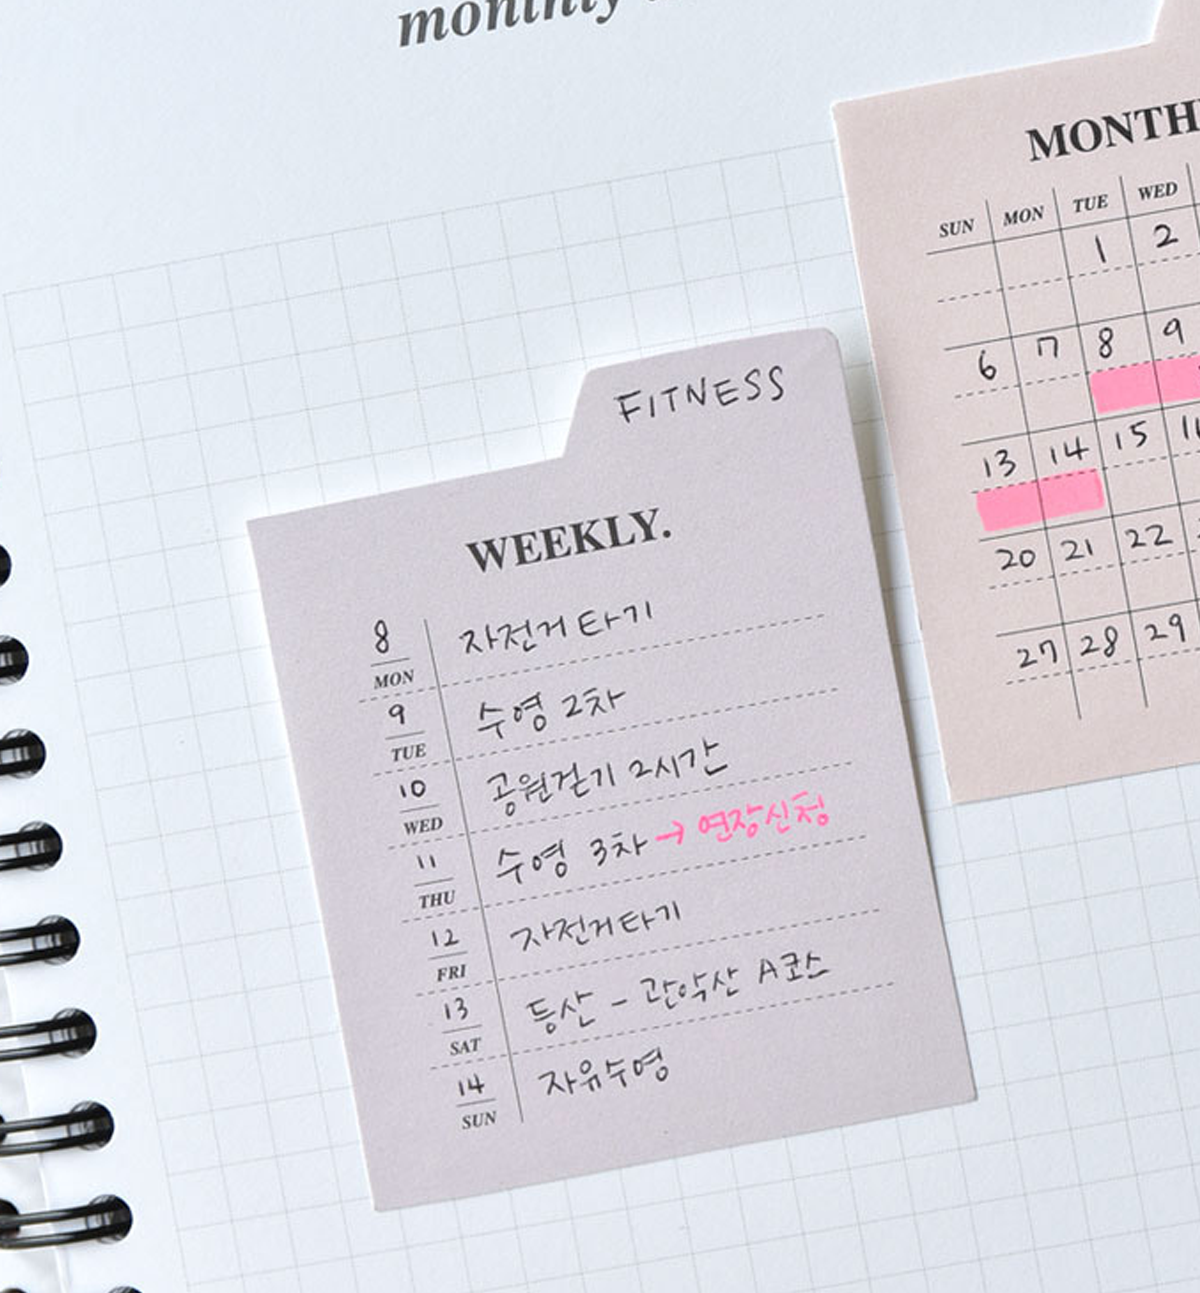 monthly
MONTH
SUN MON TUE WED
1 2
6 7 8 9
13 14 15
20 21 22
27 28 29
FITNESS
WEEKLY.
8 MON 자전거타기
9 TUE 수영 2차
10 WED 공원걷기 2시간
11 THU 수영 3차 → 연장신청
12 FRI 자전거타기
13 SAT 등산 - 관악산 A코스
14 SUN 자유수영